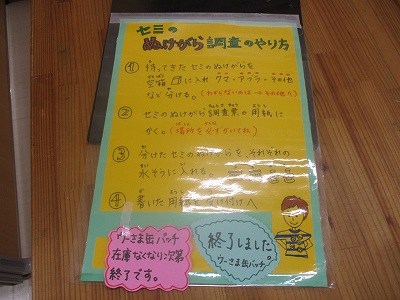 セミの
ぬけがら調査のやり方
① 持ってきたセミのぬけがらを
空箱 に入れ クマ・アブラ・その他
など分ける。(わからないのは→その他へ)
② セミのぬけがら調査票の用紙に
かく。(場所を必ずかいてね)
③ 分けたセミのぬけがらを それぞれの
水そうに入れる。
④ 書いた用紙を 受け付けへ
ウーさま缶バッチ
在庫なくなり次第
終了です。
終了しました。
ウーさま缶バッチ